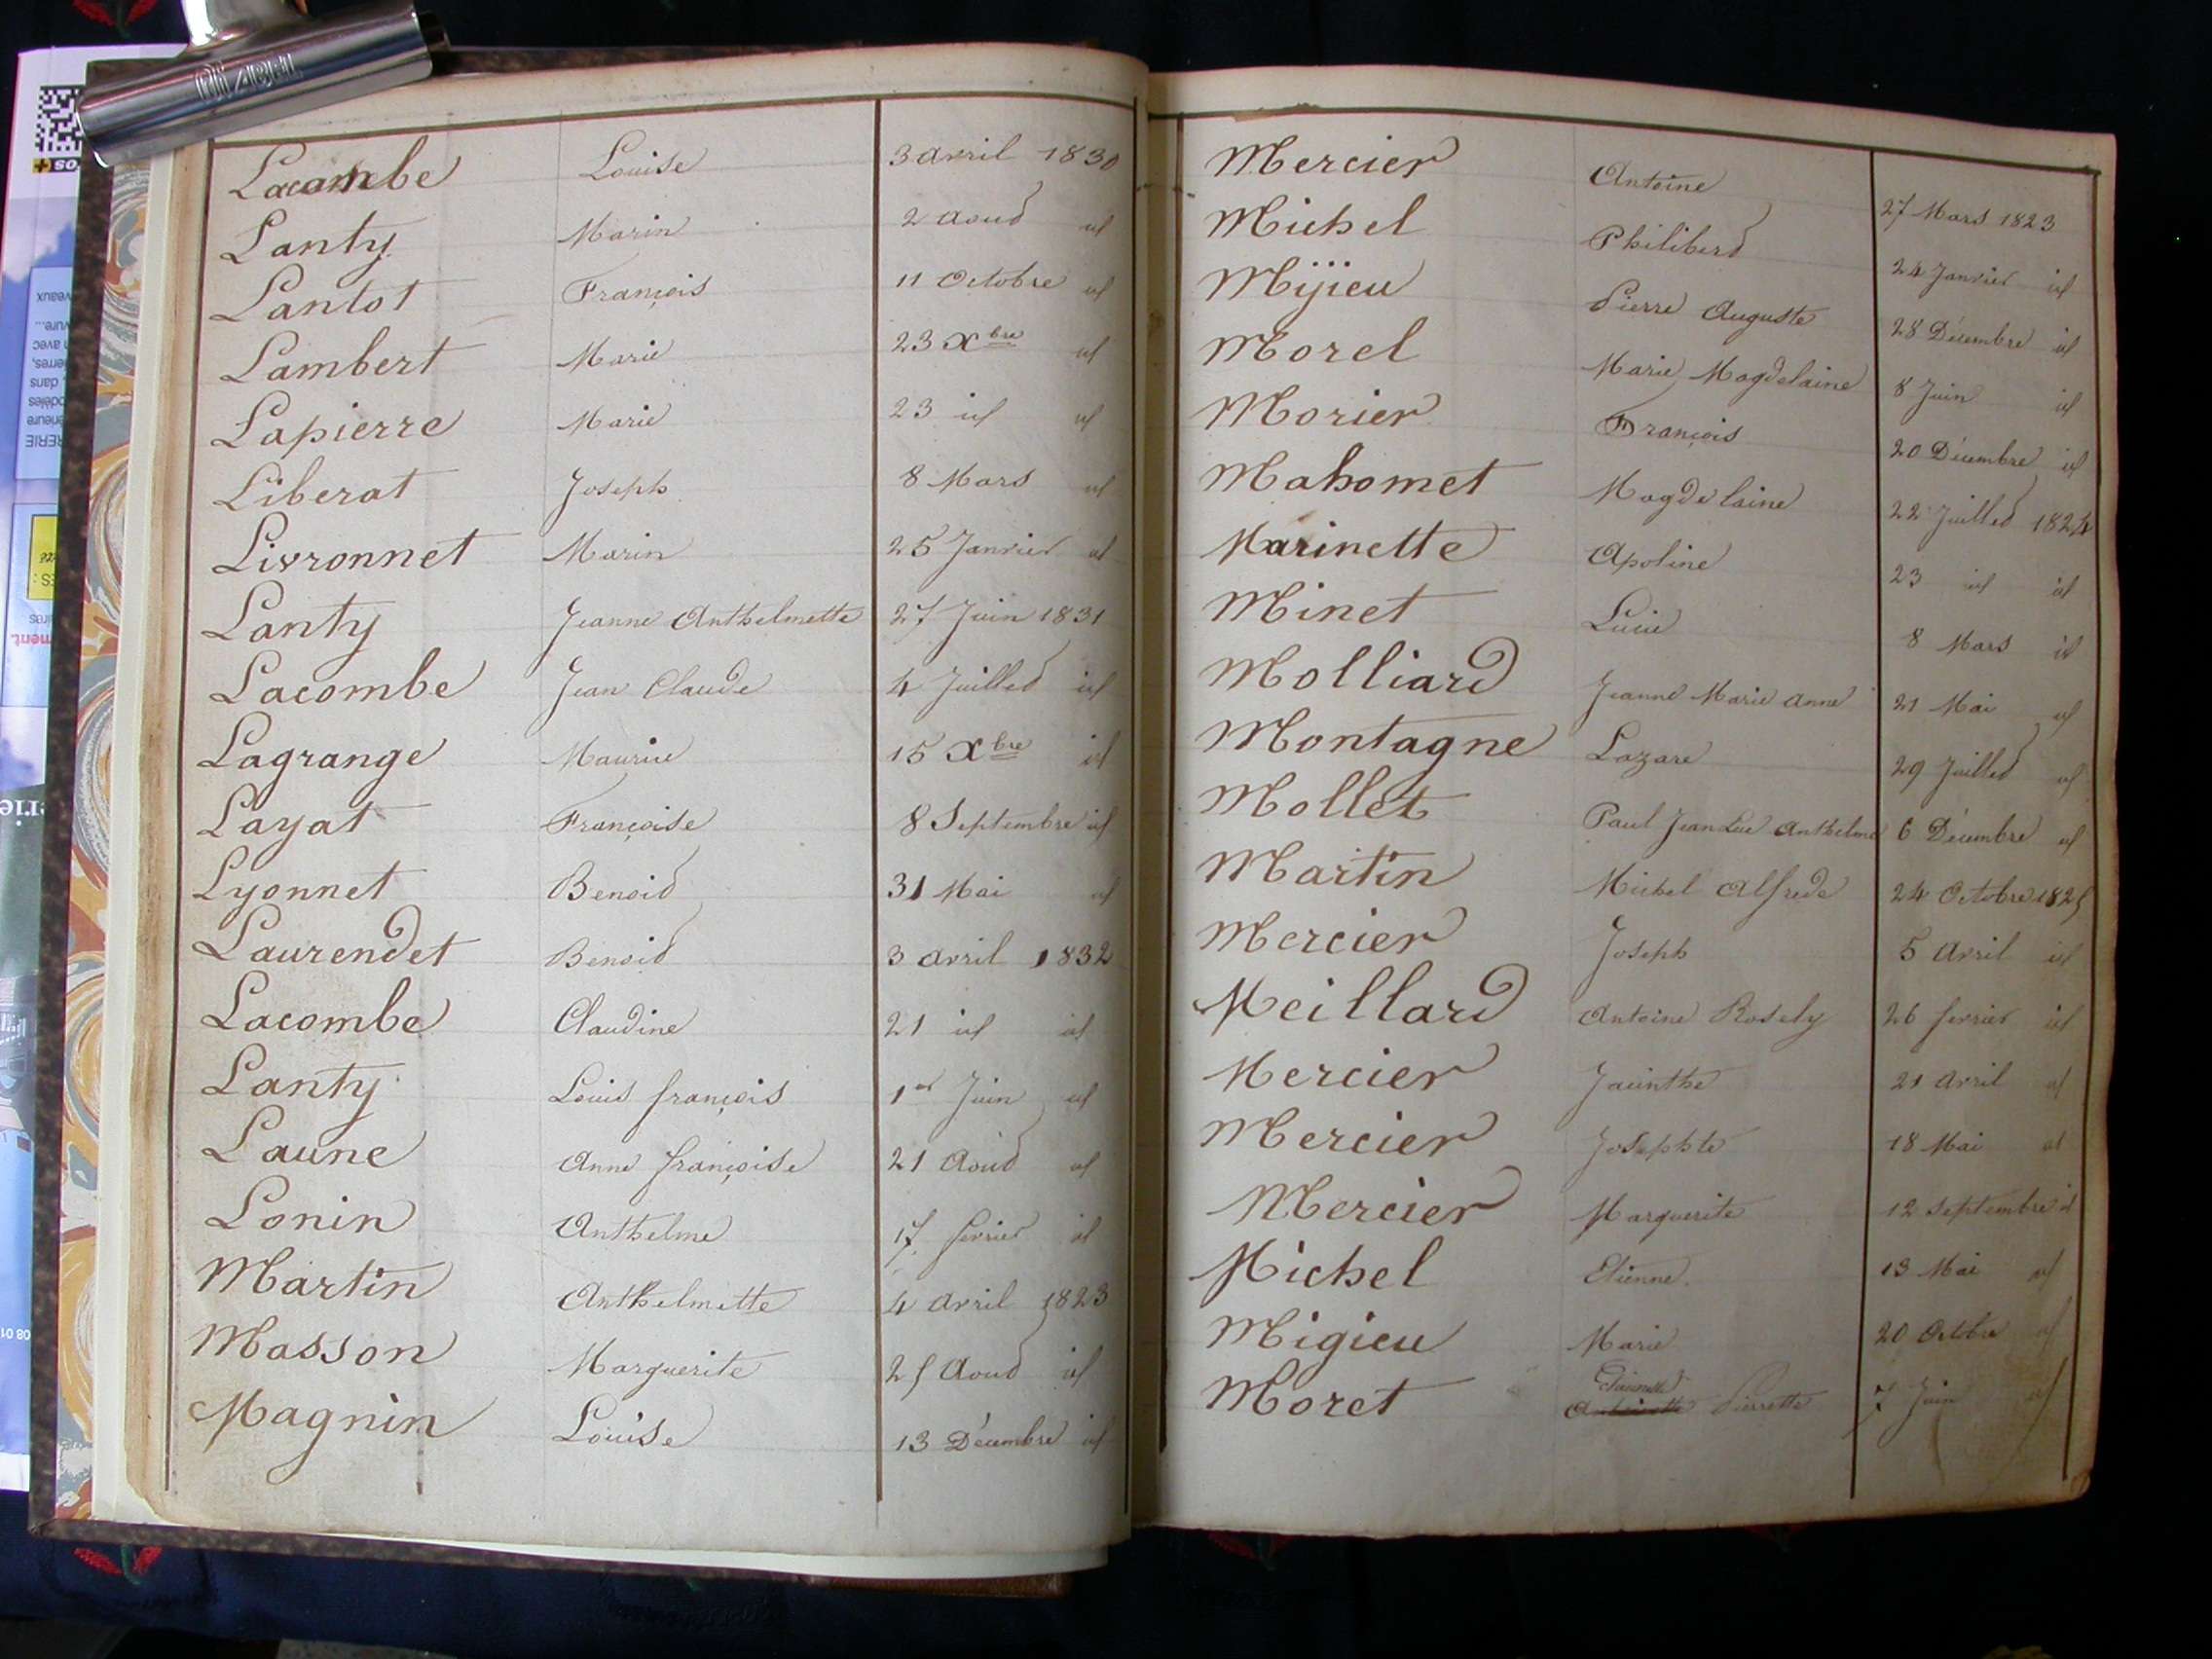 DIZABEL
Lacombe Louise 3 avril 1830
Lanty Marin 2 aout id
Lantot François 11 Octobre id
Lambert Marie 23 Xbre id
Lapierre Marie 23 id id
Liberat Joseph 8 Mars id
Livronnet Marin 25 Janvier id
Lanty Jeanne Anthelmette 27 Juin 1831
Lacombe Jean Claude 4 Juillet id
Lagrange Maurice 15 Xbre id
Layat Françoise 8 Septembre id
Lyonnet Benoit 31 Mai id
Laurendet Benoit 3 avril 1832
Lacombe Claudine 21 id id
Lanty Louis françois 1er Juin id
Laune Anne françoise 21 Aout id
Lonin Anthelme 17 fevrier id
Martin Anthelmette 4 avril 1823
Masson Marguerite 25 Aout id
Magnin Louise 13 Décembre id
Mercier Antoine 27 Mars 1823
Michel Philibert 24 Janvier id
Mijieu Pierre Auguste 28 Décembre id
Morel Marie Magdelaine 8 Juin id
Morier François 20 Décembre id
Mahomet Magdelaine 22 Juillet 1824
Marinette Apoline 23 id id
Minet Lucie 8 Mars id
Molliard Jeanne Marie Anne 21 Mai id
Montagne Lazare 29 Juillet id
Mollet Paul Jean Luc Anthelme 6 Décembre id
Martin Michel Alfrede 24 Octobre 1825
Mercier Joseph 5 Avril id
Meillard Antoine Rosely 26 fevrier id
Mercier Jacinthe 21 Avril id
Mercier Josephte 18 Mai id
Mercier Marguerite 12 septembre id
Michel Etienne 13 Mai id
Migieu Marie 20 Octobre id
Moret Pierrette 7 Juin id